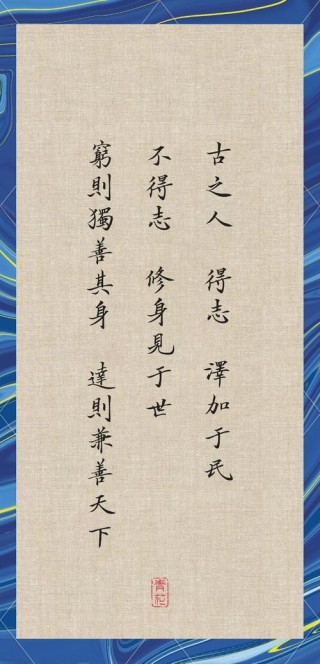 古之人　得志　澤加于民
不得志　修身見于世
窮則獨善其身　達則兼善天下